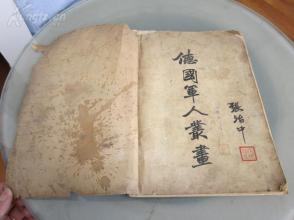 德國軍人叢畫
張治中